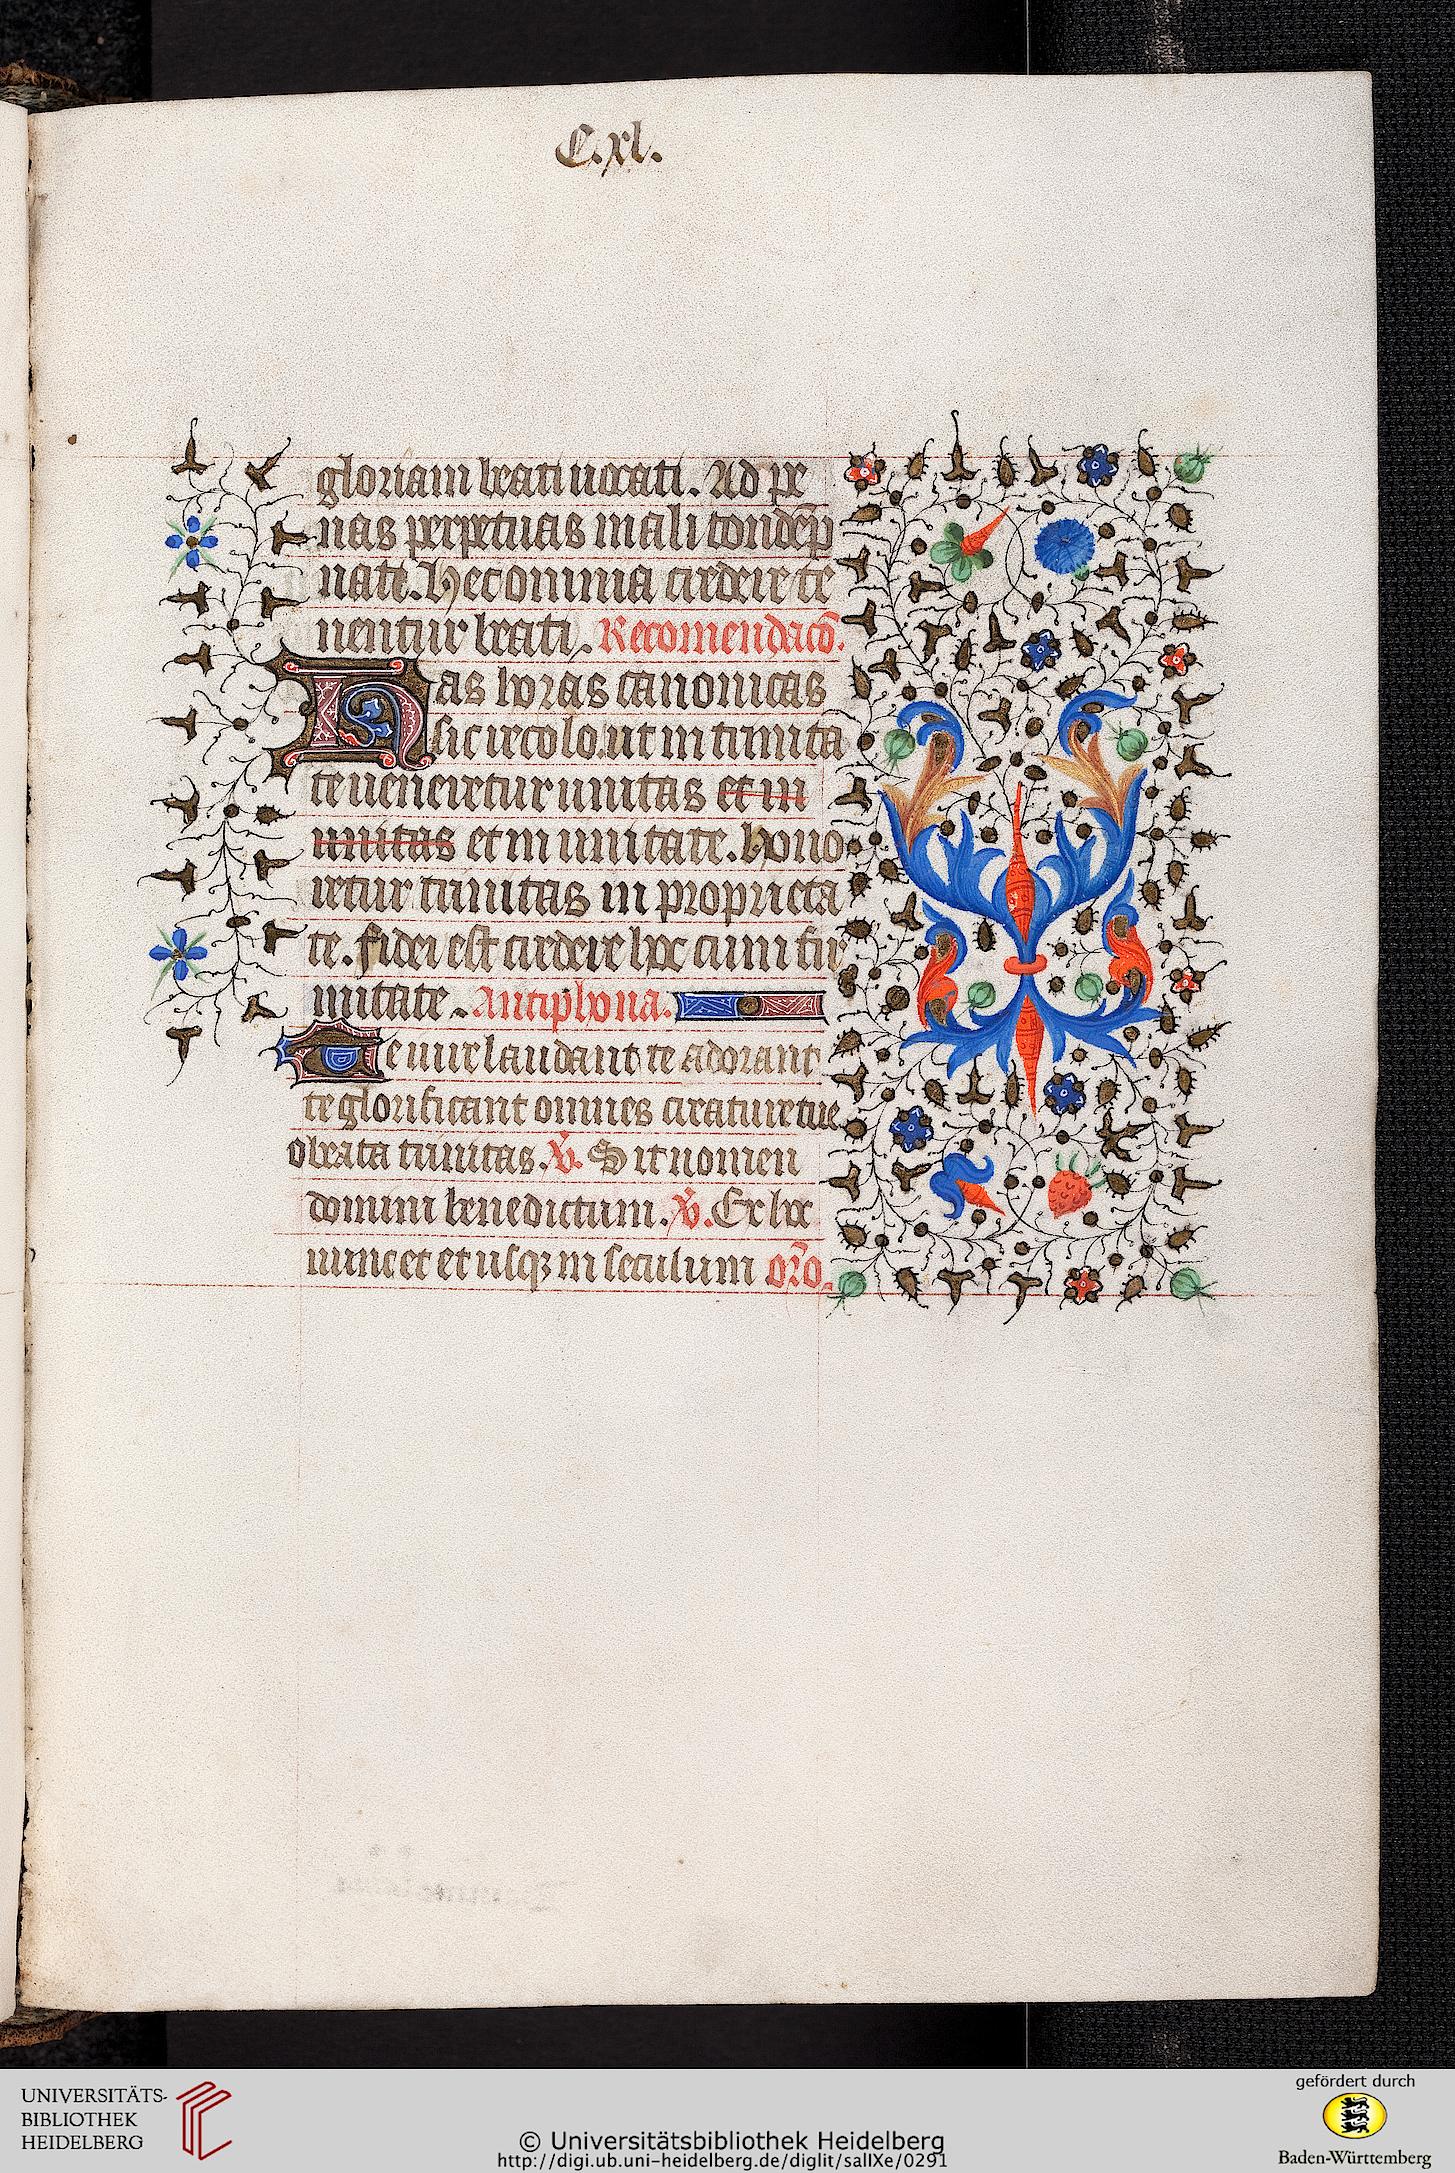 C.xl.
gloriam beati uocati. Ad pe
nas perpetuas mali condēp
nati. Hec omnia credere te
nentur beati. Recomendacō.
Has horas canonicas
sic recolo. ut in trinita
te ueneretur unitas et in
unitas et in unitate. hono
retur trinitas in proprieta
te. fidei est credere hoc cum fir
mitate. Antiphona.
Te iure laudant te adorant
te glorificant omnes creature tue
o beata trinitas. V̄. Sit nomen
domini benedictum. V̄. Ex hoc
nunc et et usqꝫ in seculum or̄o.
UNIVERSITÄTS-
BIBLIOTHEK
HEIDELBERG
© Universitätsbibliothek Heidelberg
http://digi.ub.uni-heidelberg.de/diglit/salIXe/0291
gefördert durch
Baden-Württemberg